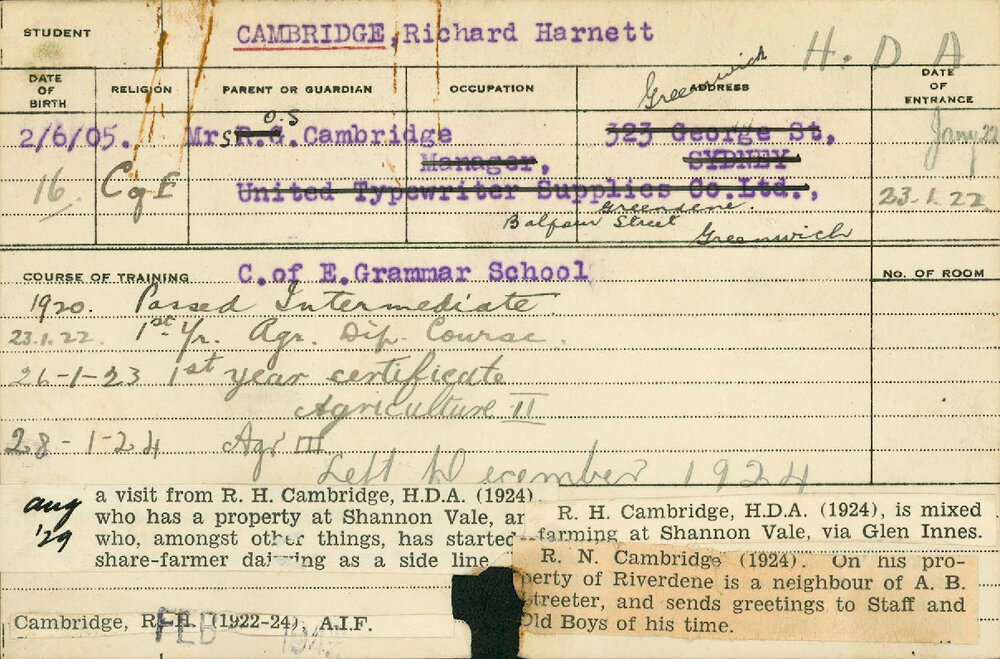 STUDENT
CAMBRIDGE, Richard Harnett
H. D A
DATE OF BIRTH
RELIGION
PARENT OR GUARDIAN
OCCUPATION
Greenwich
ADDRESS
DATE OF ENTRANCE
2/6/05.
O.S
Mrs R.G. Cambridge
323 George St,
Jany 22
Manager,
SYDNEY
16
C of E
United Typewriter Supplies Co.Ltd.,
23.1.22
Greendene.
Balfour Street
Greenwich
COURSE OF TRAINING
C.of E.Grammar School
No. OF ROOM
1920. Passed Intermediate.
23.1.22. 1st Yr. Agr. Dip. Course.
26-1-23 1st year certificate
Agriculture II
28-1-24 Agr III
Left December 1924
Aug '29
a visit from R. H. Cambridge, H.D.A. (1924)
who has a property at Shannon Vale, an
who, amongst other things, has started
share-farmer dairying as a side line
R. H. Cambridge, H.D.A. (1924), is mixed
farming at Shannon Vale, via Glen Innes.
R. N. Cambridge (1924). On his pro-
perty of Riverdene is a neighbour of A. B.
Streeter, and sends greetings to Staff and
Old Boys of his time.
Cambridge, R. H. (1922-24), A.I.F.
FEB